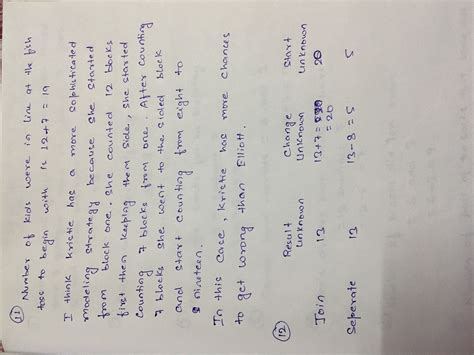 (11) Number of kids were in line at the fish
toss to begin with is 12+7 = 19
I think kristie has a more sophisticated
modeling strategy because she started
from block one. She counted 12 blocks
first then keeping them side, she started
counting 7 blocks from one. After counting
7 blocks she went to the sided block
and start counting from eight to
nineteen.
In this case, kristie has more chances
to get wrong than Elliott.
(12)
Result Unknown Change Unknown Start Unknown
Join 13 13+7= 20 20
= 20
Seperate 13 13-8=5 5